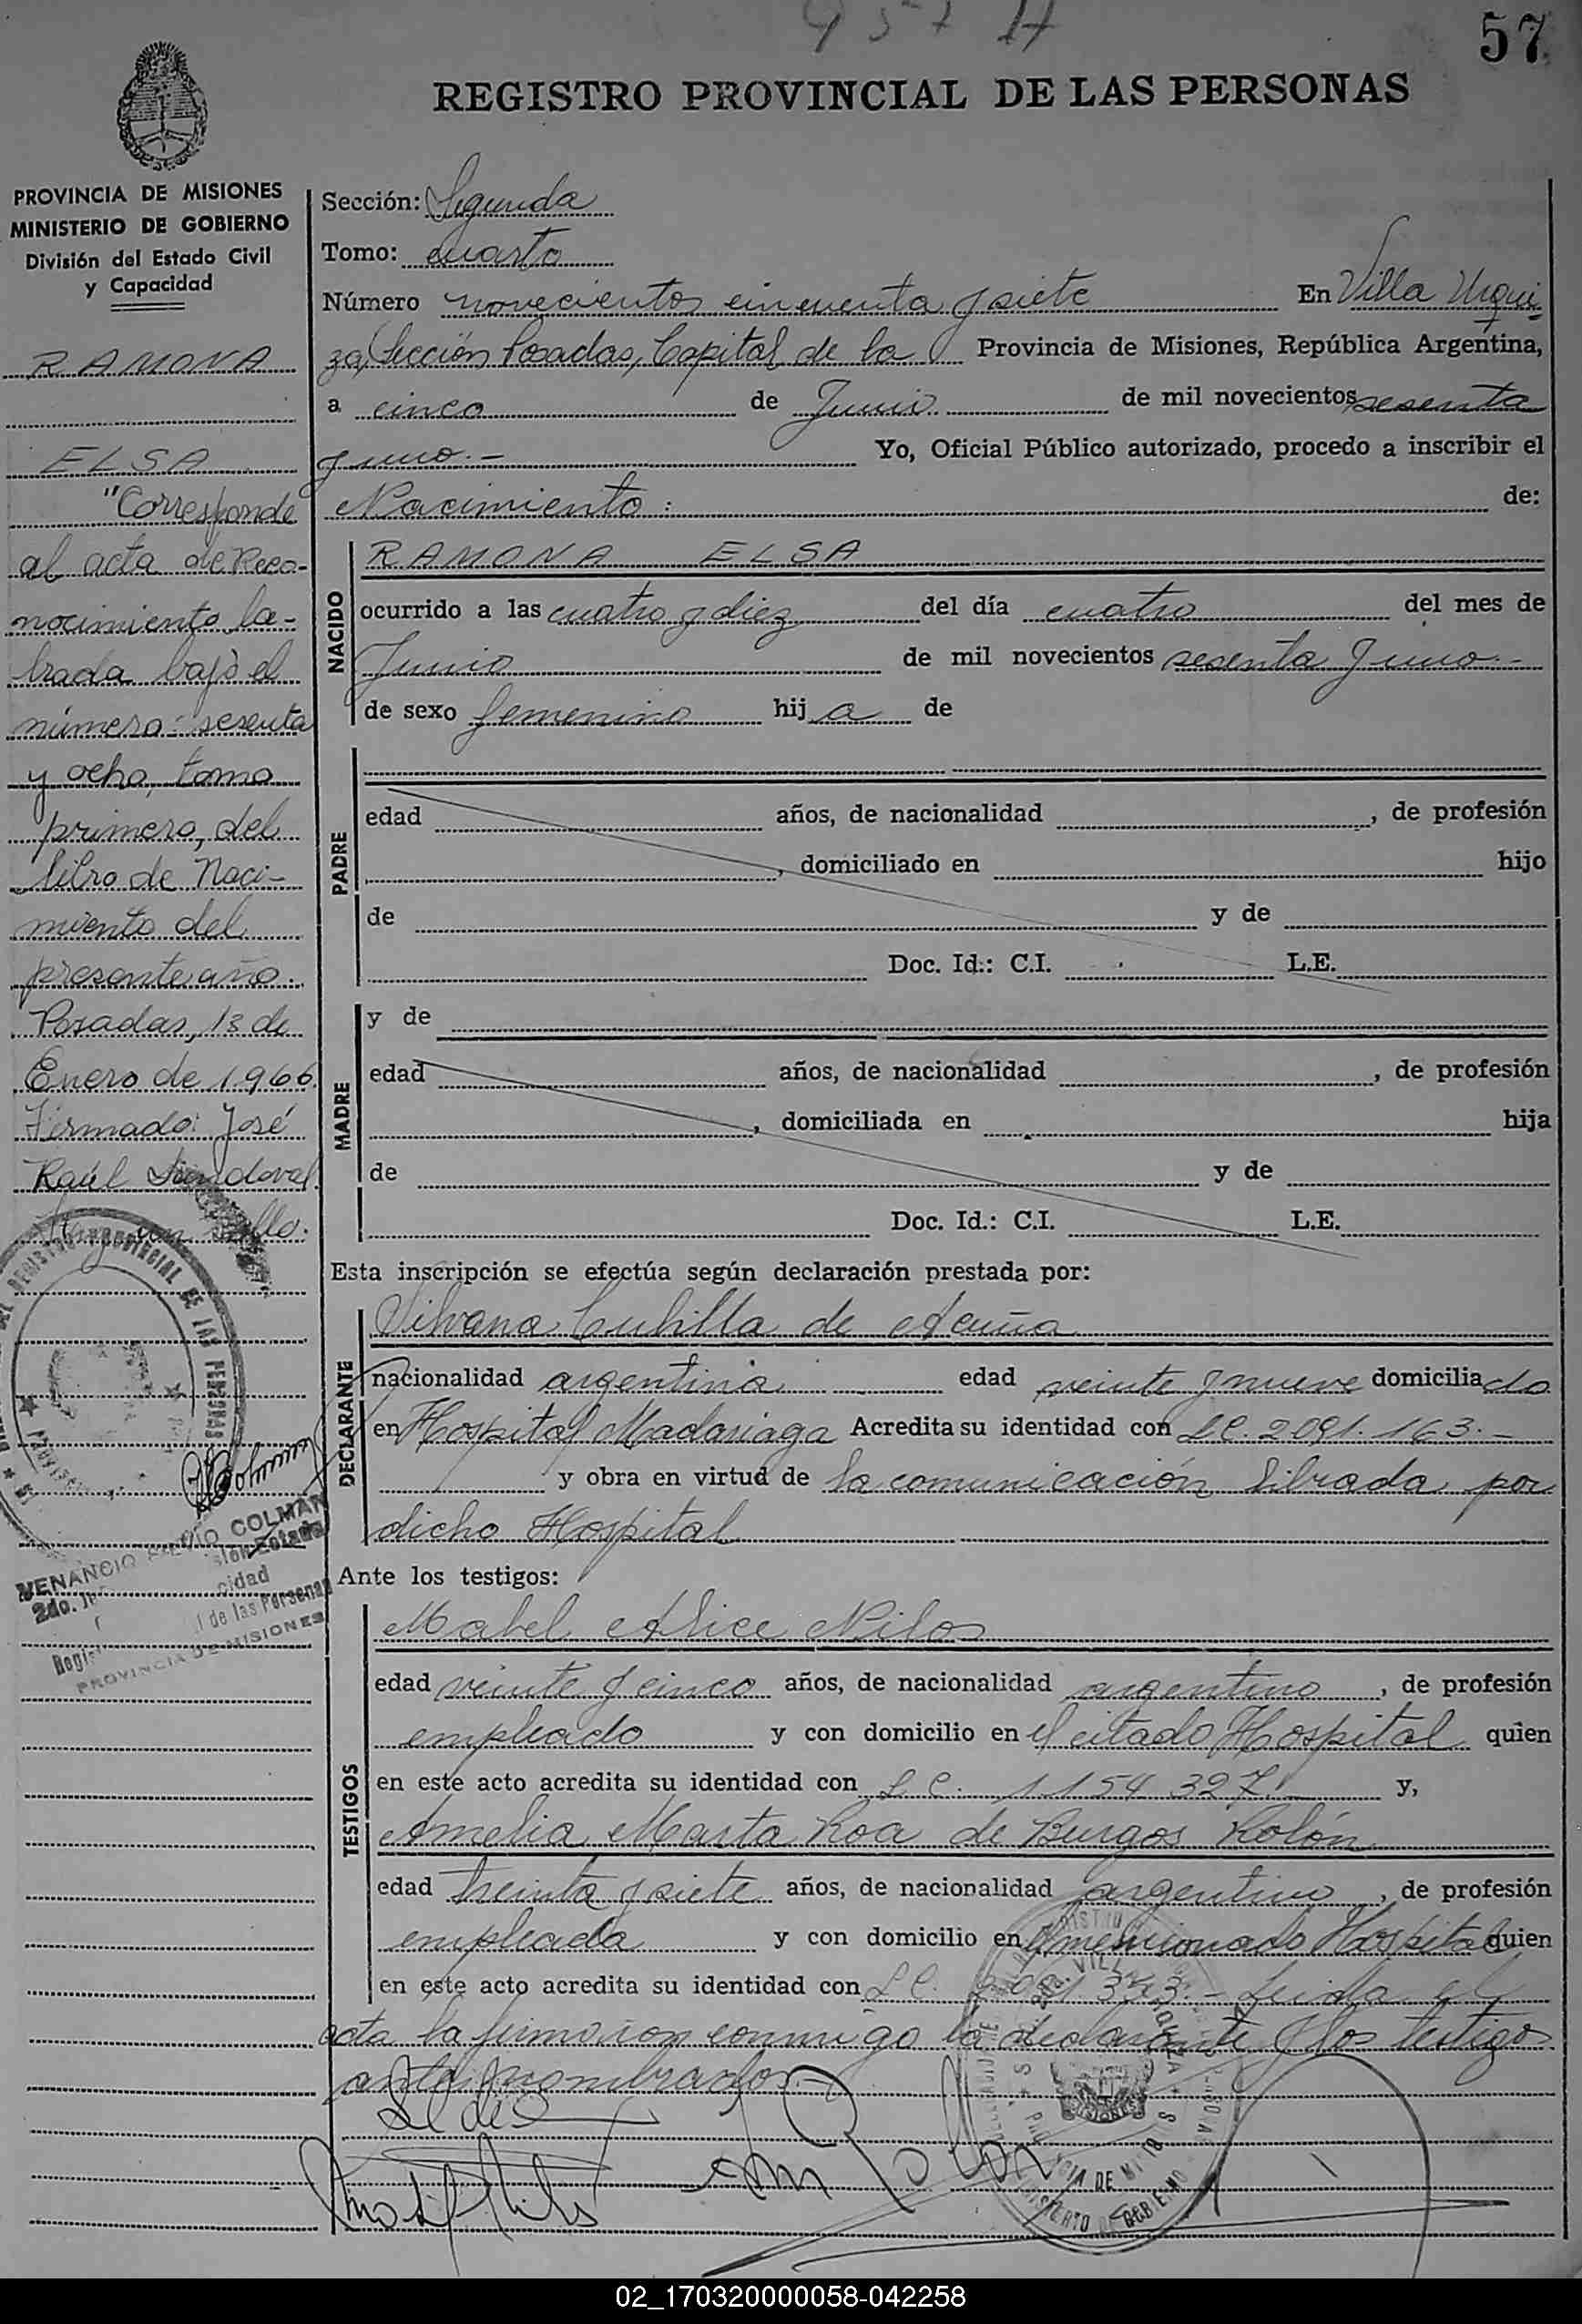 957 A
57
REGISTRO PROVINCIAL DE LAS PERSONAS
PROVINCIA DE MISIONES
MINISTERIO DE GOBIERNO
División del Estado Civil
y Capacidad
RAMONA
ELSA
"Corresponde
al acta de Reco-
nocimiento la-
brada bajo el
número: sesenta
y ocho, tomo
primero, del
libro de Naci-
miento del
presente año.
Posadas, 13 de
Enero de 1966.
Firmado: José
Raúl Sandoval.
Hay un sello.
VENANCIO COLMAN
2do.
cidad
de las Personas
PROVINCIA DE MISIONES
Sección: Segunda
Tomo: cuarto
Número novecientos cincuenta y siete En Villa Urqui-
za, Sección Posadas, Capital de la Provincia de Misiones, República Argentina,
a cinco de Junio de mil novecientos sesenta
y uno.- Yo, Oficial Público autorizado, procedo a inscribir el
Nacimiento: de:
NACIDO
RAMONA ELSA
ocurrido a las cuatro y diez del día cuatro del mes de
Junio de mil novecientos sesenta y uno.-
de sexo femenino hija de
PADRE
edad años, de nacionalidad , de profesión
, domiciliado en hijo
de y de
Doc. Id.: C.I. L.E.
MADRE
y de
edad años, de nacionalidad , de profesión
, domiciliada en hija
de y de
Doc. Id.: C.I. L.E.
Esta inscripción se efectúa según declaración prestada por:
DECLARANTE
Silvana Cubilla de Acuña
nacionalidad argentina edad veinte y nueve domiciliado
en Hospital Madariaga Acredita su identidad con LC. 2091.163.-
y obra en virtud de la comunicación librada por
dicho Hospital
Ante los testigos:
TESTIGOS
Mabel Alice Nilos
edad veinte y cinco años, de nacionalidad argentino, de profesión
empleado y con domicilio en el citado Hospital quien
en este acto acredita su identidad con L C. 1154.327.- y,
Amelia Marta Roa de Burgos Rolón
edad treinta y siete años, de nacionalidad argentino, de profesión
empleada y con domicilio en el mencionado Hospital quien
en este acto acredita su identidad con L C. Leida el
acta la firmaron conmigo la declarante y los testigos
antes nombrados.-
02_170320000058-042258